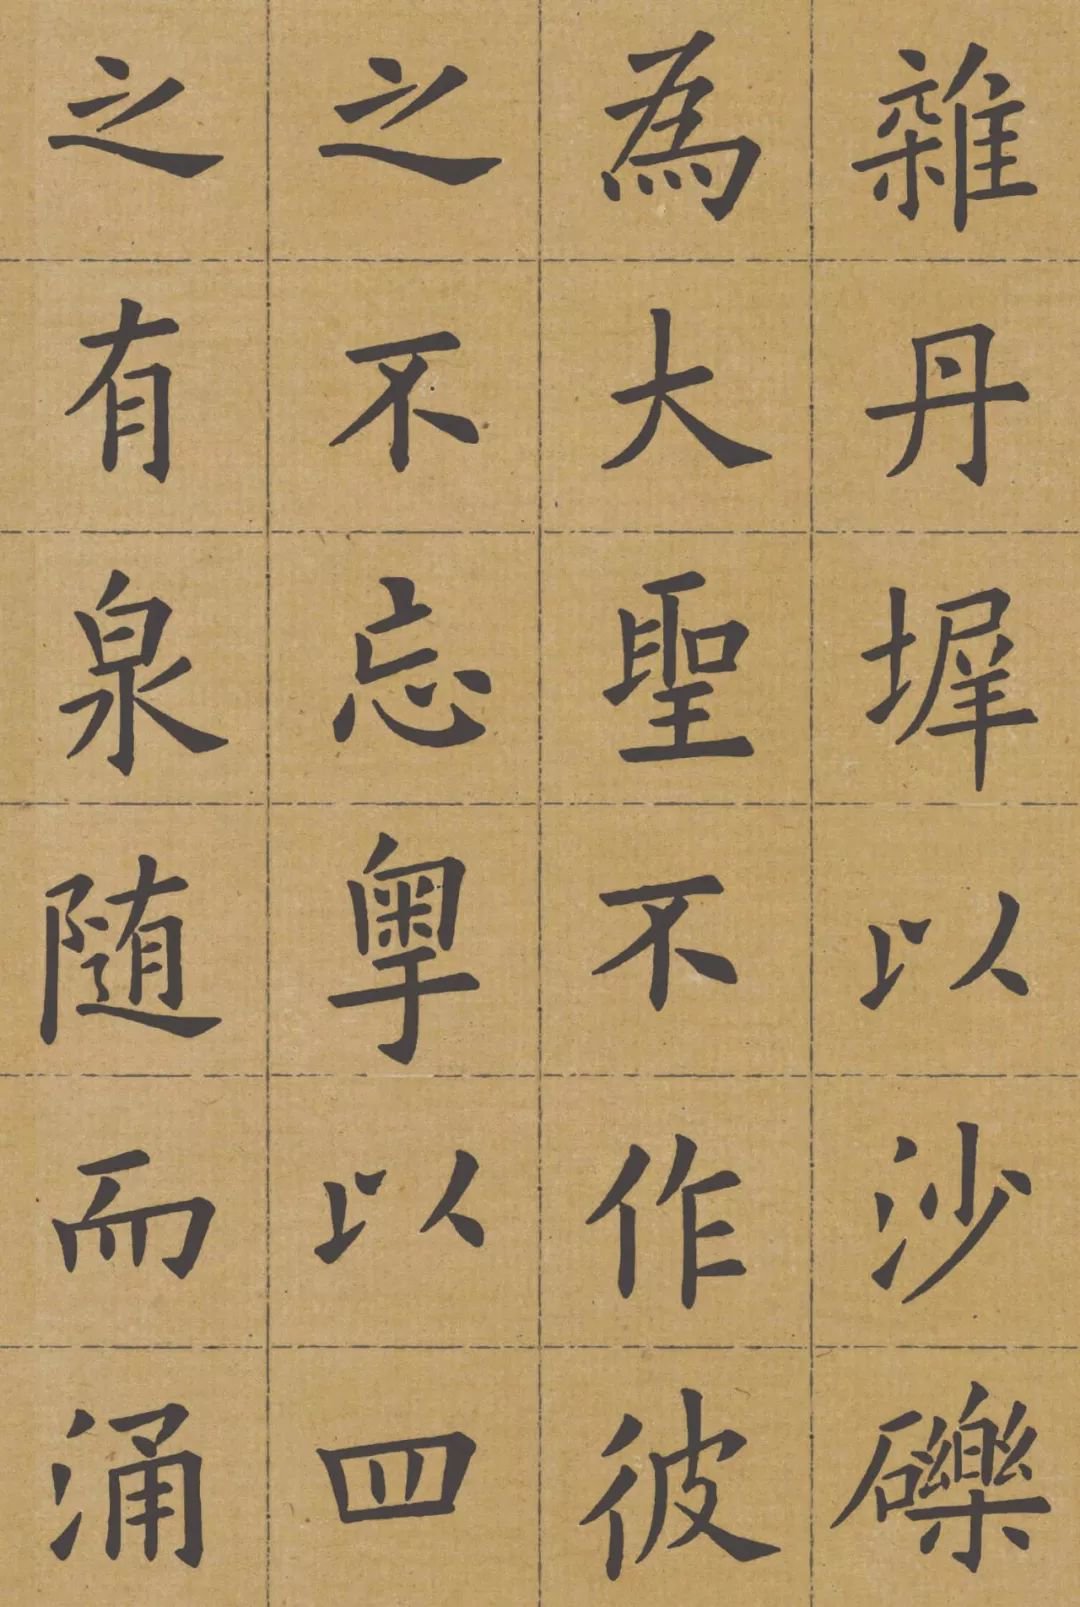 雜丹墀以沙礫
為大聖不作彼
之不忘粤以四
之有泉随而涌